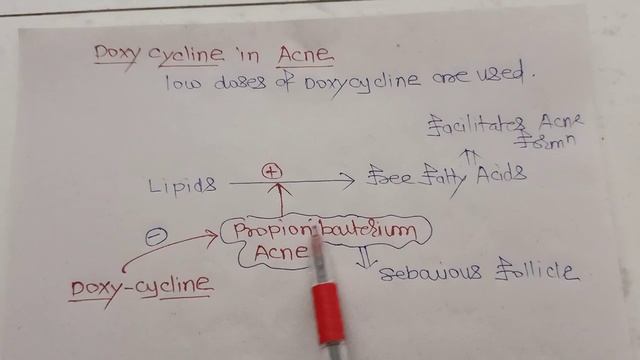 Doxy cycline in Acne
low doses of Doxycycline are used.
Facilitates Acne
Formn
Lipids
+
Free Fatty Acids
-
Propionibacterium
Acne
Sebaious Follicle
Doxy-cycline